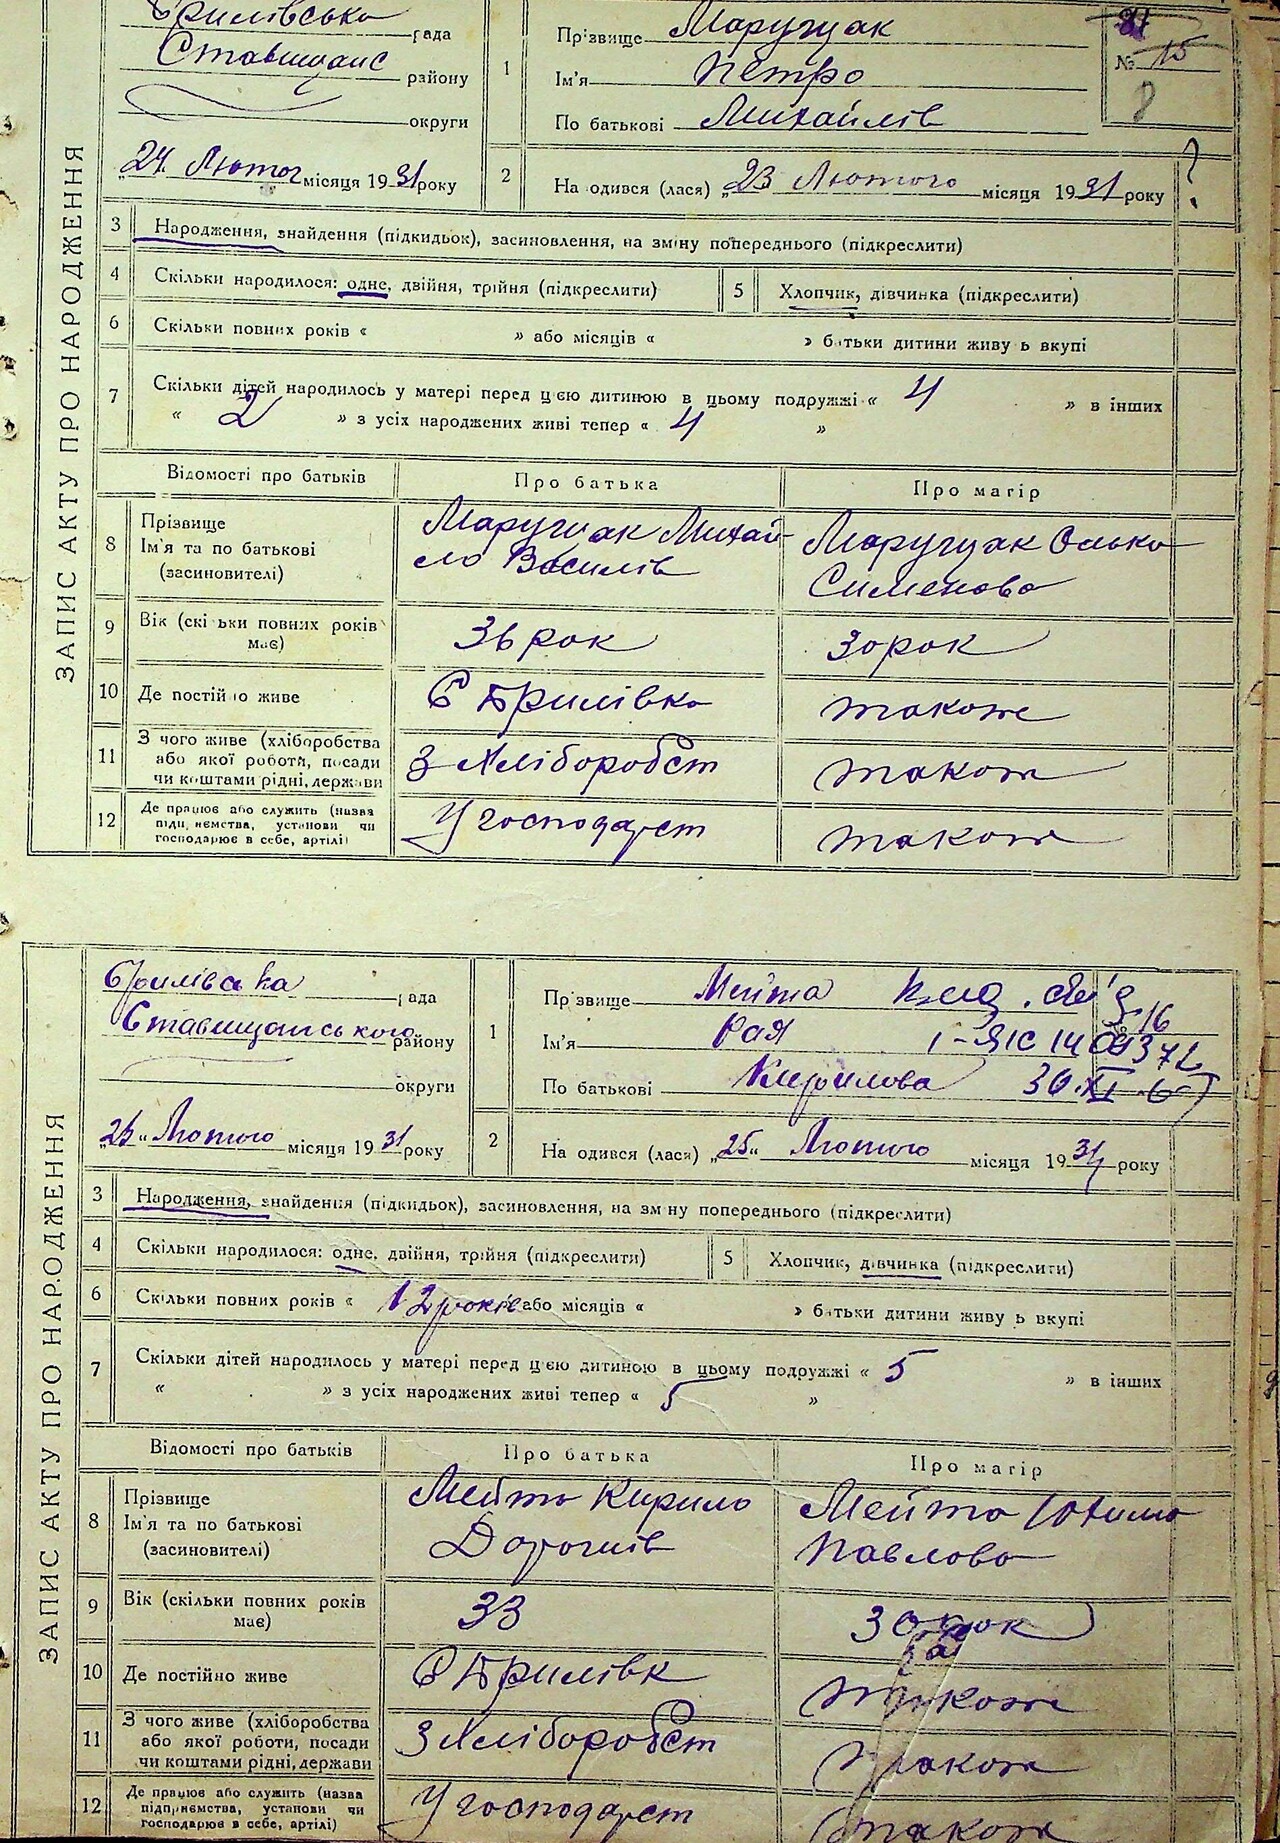 ЗАПИС АКТУ ПРО НАРОДЖЕННЯ
Брилівська рада
Ставищанс району
округи
"24" Лютог місяця 1931 року
1
Прізвище Маругцак
Ім'я Петро
По батькові Михайлів
№ 15
8
2
На одився (лася) "23 Лютого місяця 1931 року
?
3 Народження, знайдення (підкидьок), засиновлення, на зміну попереднього (підкреслити)
4 Скільки народилося: одне, двійня, трійня (підкреслити) 5 Хлопчик, дівчинка (підкреслити)
6 Скільки повних років « » або місяців « » батьки дитини живу ь вкупі
7 Скільки дітей народилось у матері перед цією дитиною в цьому подружжі « 4 » в інших
« 2 » з усіх народжених живі тепер « 4 »
Відомості про батьків Про батька Про матір
8 Прізвище
Ім'я та по батькові
(засиновителі)
Маругцак Михай-
ло Василів
Маругцак Олька
Сименова
9 Вік (скі ьки повних років
має)
36 рок
30 рок
10 Де постійно живе С Брилівка також
11 З чого живе (хліборобства
або якої роботи, посади
чи коштами рідні, держави
З Хліборобст
також
12 Де працює або служить (назва
підп иємства, установи чи
господарює в себе, артілі)
У господарст
також
ЗАПИС АКТУ ПРО НАРОДЖЕННЯ
Брилівська рада
Ставищанського району
округи
"26" Лютого місяця 1931 року
1
Прізвище Мейта
Ім'я Рая
По батькові Кирилова
30.XI.67
2
На одився (лася) "25" Лютого місяця 1931 року
3 Народження, знайдення (підкидьок), засиновлення, на зм ну попереднього (підкреслити)
4 Скільки народилося: одне, двійня, трійня (підкреслити) 5 Хлопчик, дівчинка (підкреслити)
6 Скільки повних років « 12 років або місяців « » батьки дитини живу ь вкупі
7 Скільки дітей народилось у матері перед цією дитиною в цьому подружжі « 5 » в інших
« » з усіх народжених живі тепер « 5 »
Відомості про батьків Про батька Про матір
8 Прізвище
Ім'я та по батькові
(засиновителі)
Мейта Кирило
Дорошів
Мейта Юхима
Павлова
9 Вік (скільки повних років
має)
33
30 рок
10 Де постійно живе С Брилівк також
11 З чого живе (хліборобства
або якої роботи, посади
чи коштами рідні, держави
З Хліборобст
також
12 Де працює або служить (назва
підприємства, установи чи
господарює в себе, артілі)
У господарст
також